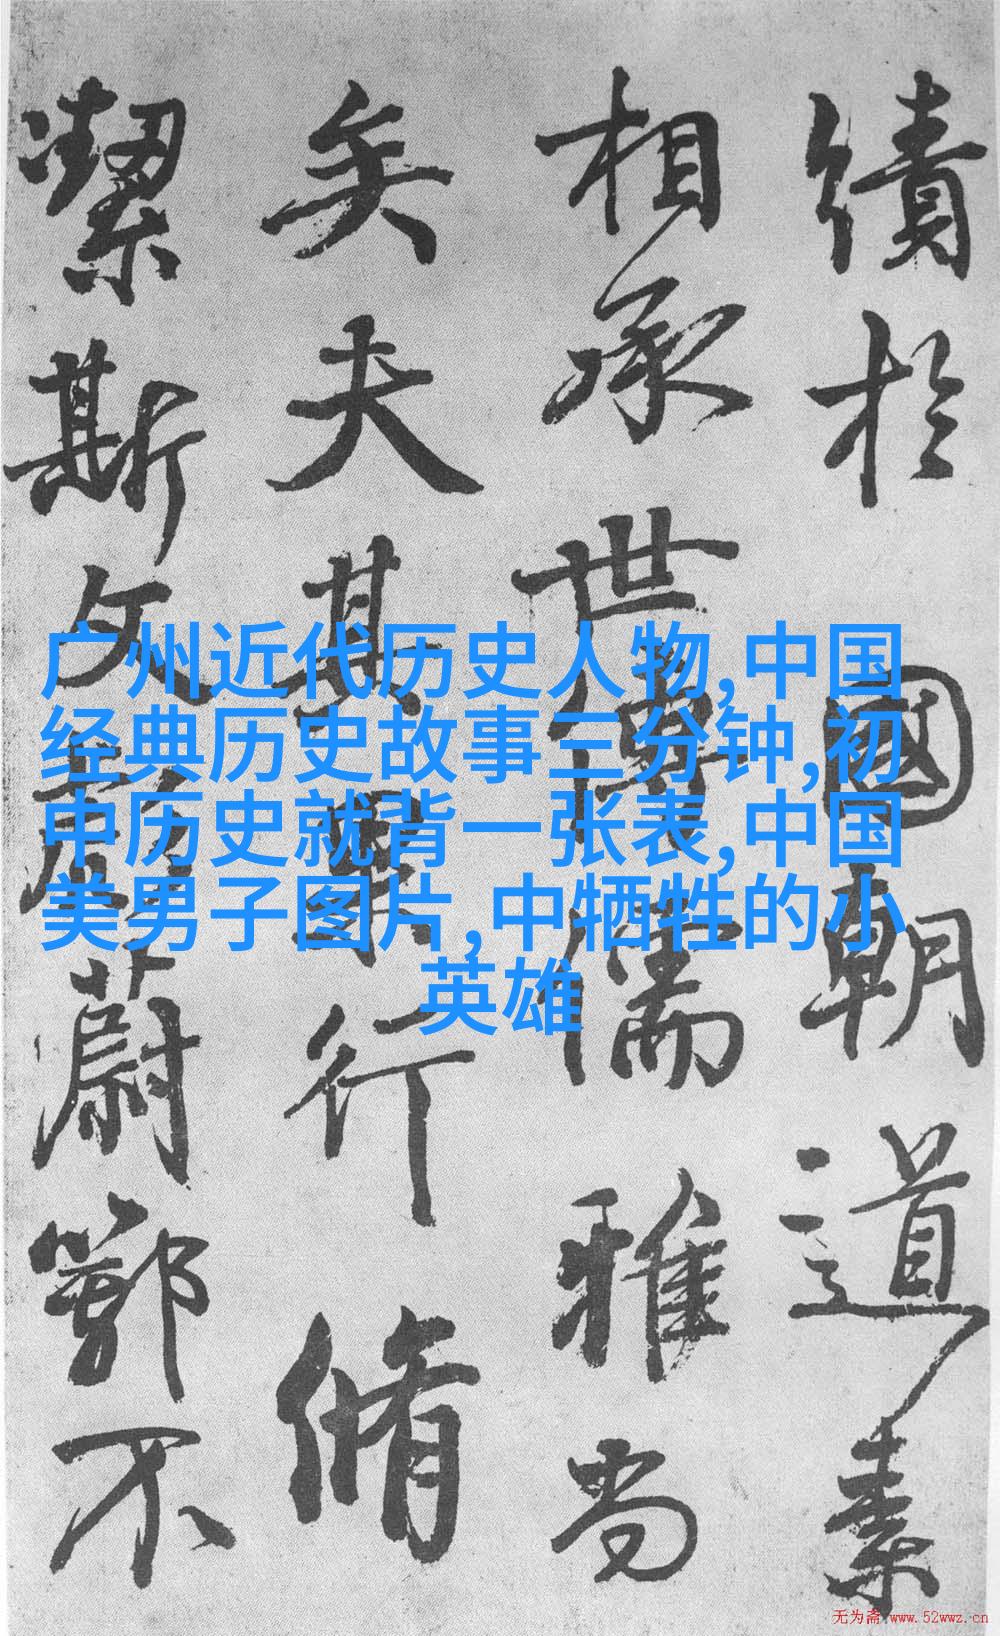 績於國朝道素
相承世傳儒雅尚
矣夫其行脩
潔斯文蔚鄂不
广州近代历史人物,中国
经典历史故事三分钟,初
中历史就背一张表,中国
美男子图片,中牺牲的小
英雄
无为斋 www.52wwz.cn